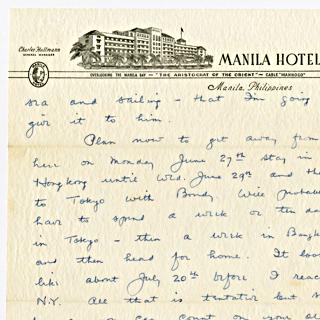 Charles Hollmann
GENERAL MANAGER
MANILA HOTEL
OVERLOOKING THE MANILA BAY — "THE ARISTOCRAT OF THE ORIENT" — CABLE "MANHOCO"
Manila, Philippines
sea and sailing - that I'm going
give it to him.
Plan now to get away from
here on Monday June 27th stay in
Hongkong until Wed. June 29th and the
to Tokyo with Bondy. Will probabl
have to spend a week or ten da
in Tokyo - then a week in Bangk
and then head for home. It loo
like about July 20th before I reac
N.Y. All that is tentative but
can count on your